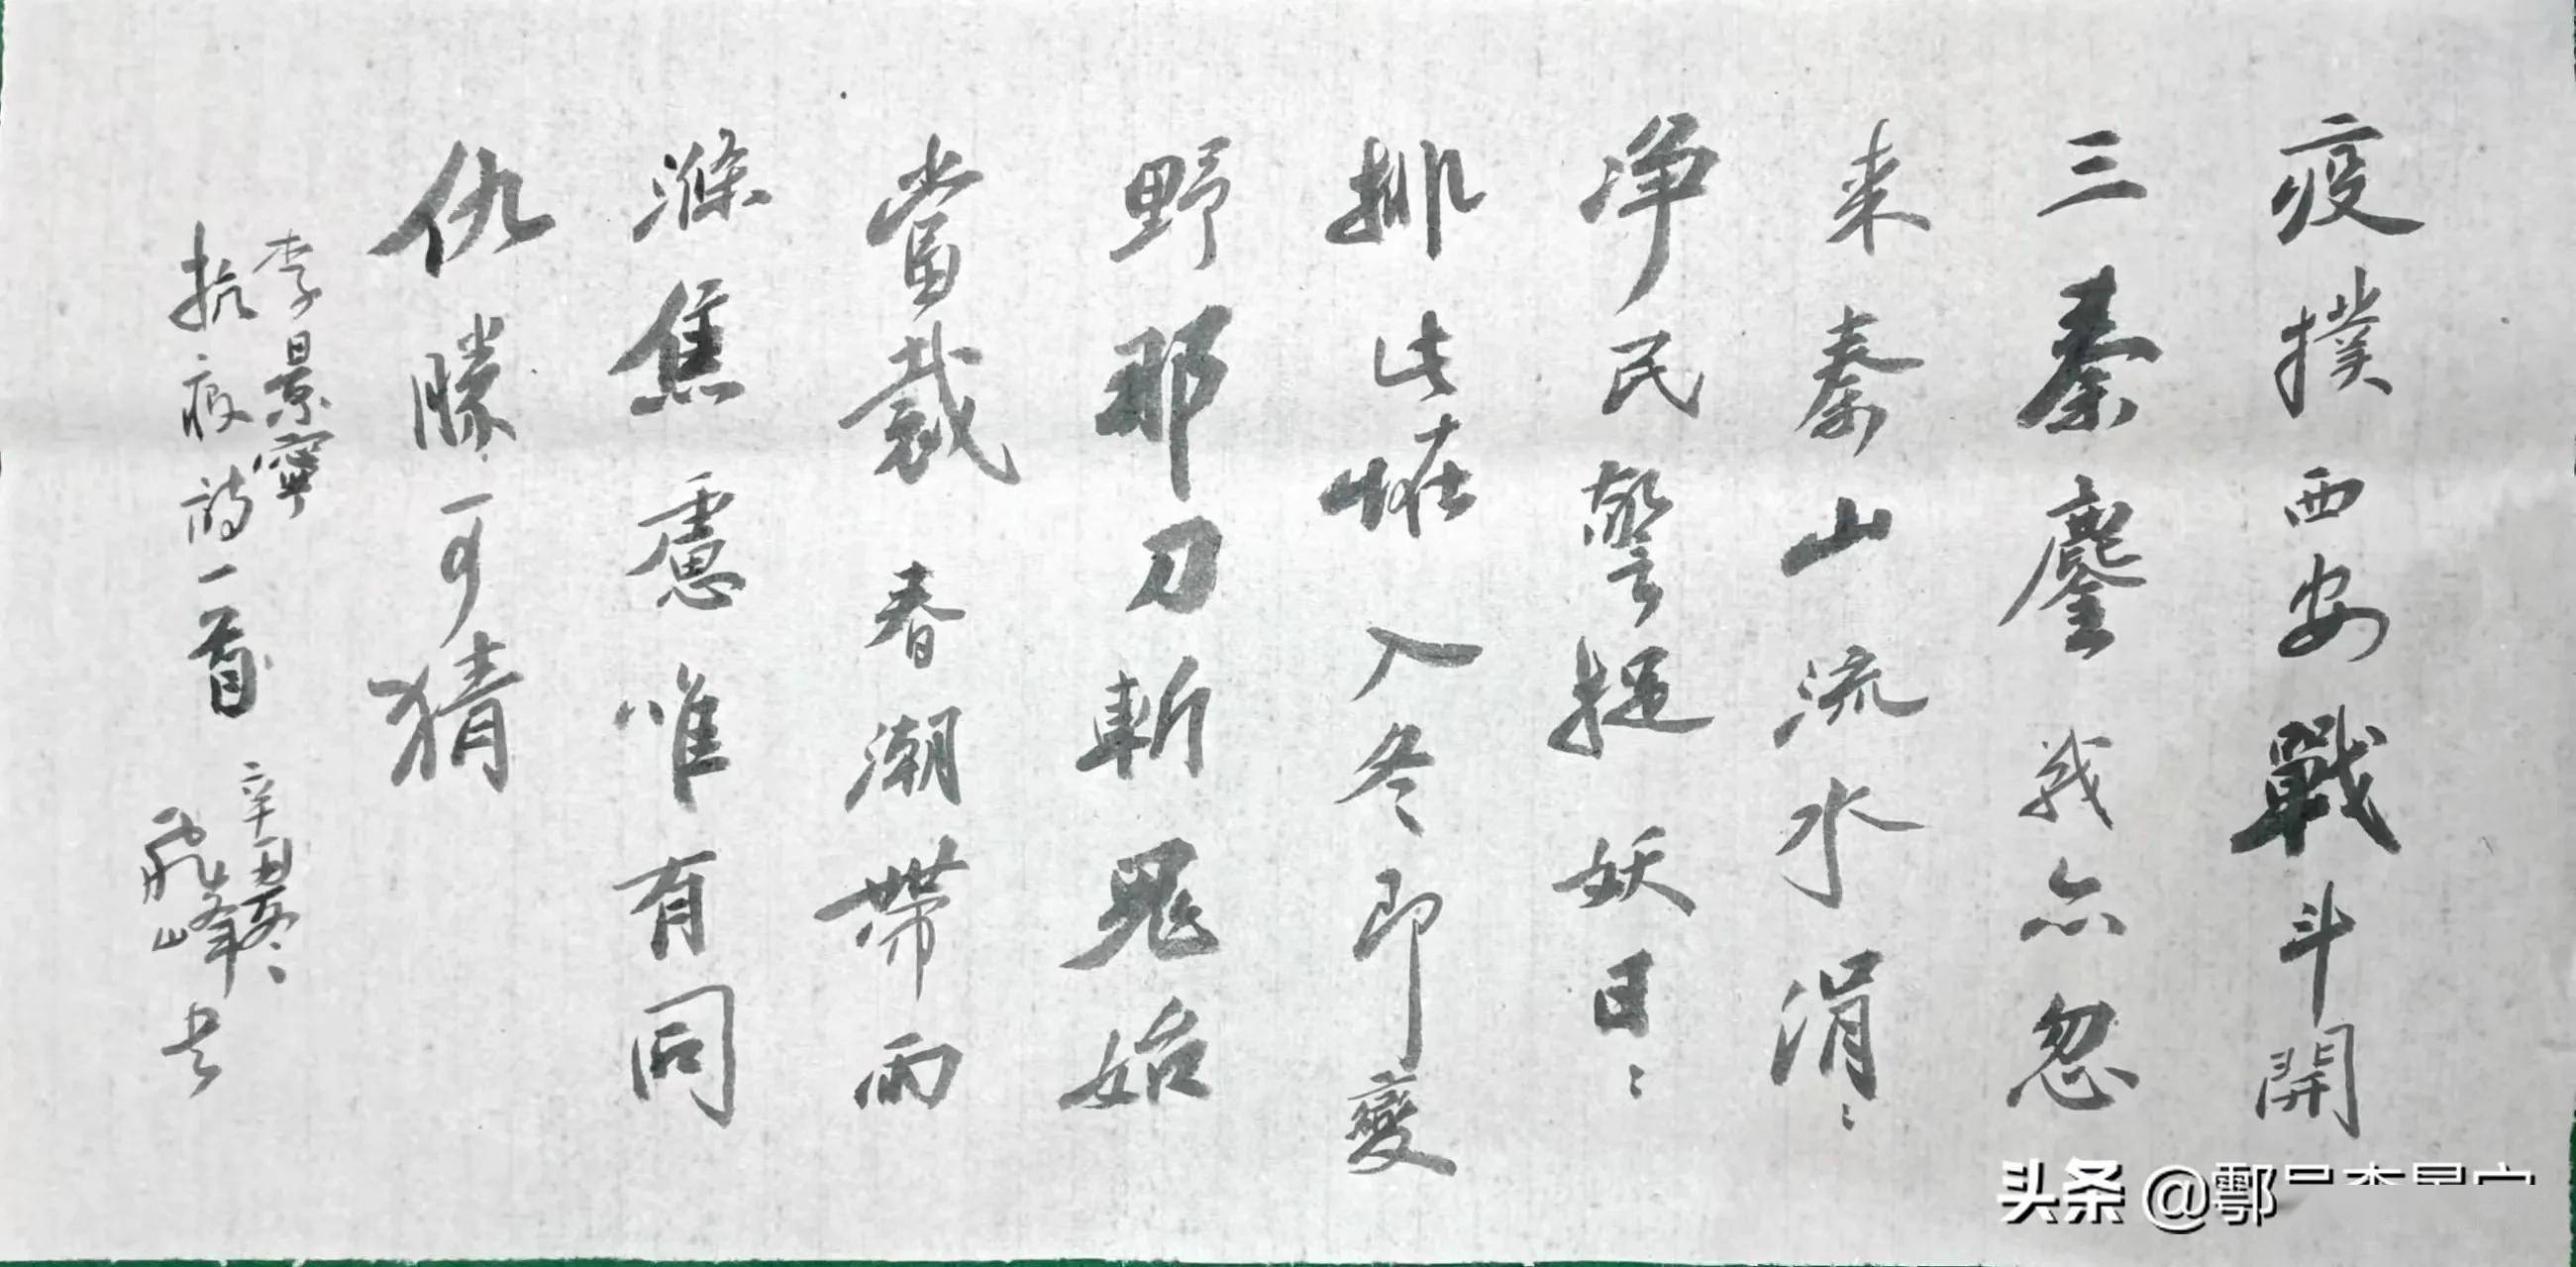 疫撲西安戰斗開
三秦鏖战亦忽
来秦山流水涓〻
净民警捉妖日〻
排此恠入冬即變
野那刀斬鬼始
當裁春潮帶雨
滌焦慮唯有同
仇勝可猜
李景寧
抗疫詩一首
辛丑冬
飛峰书
头条 @鄠